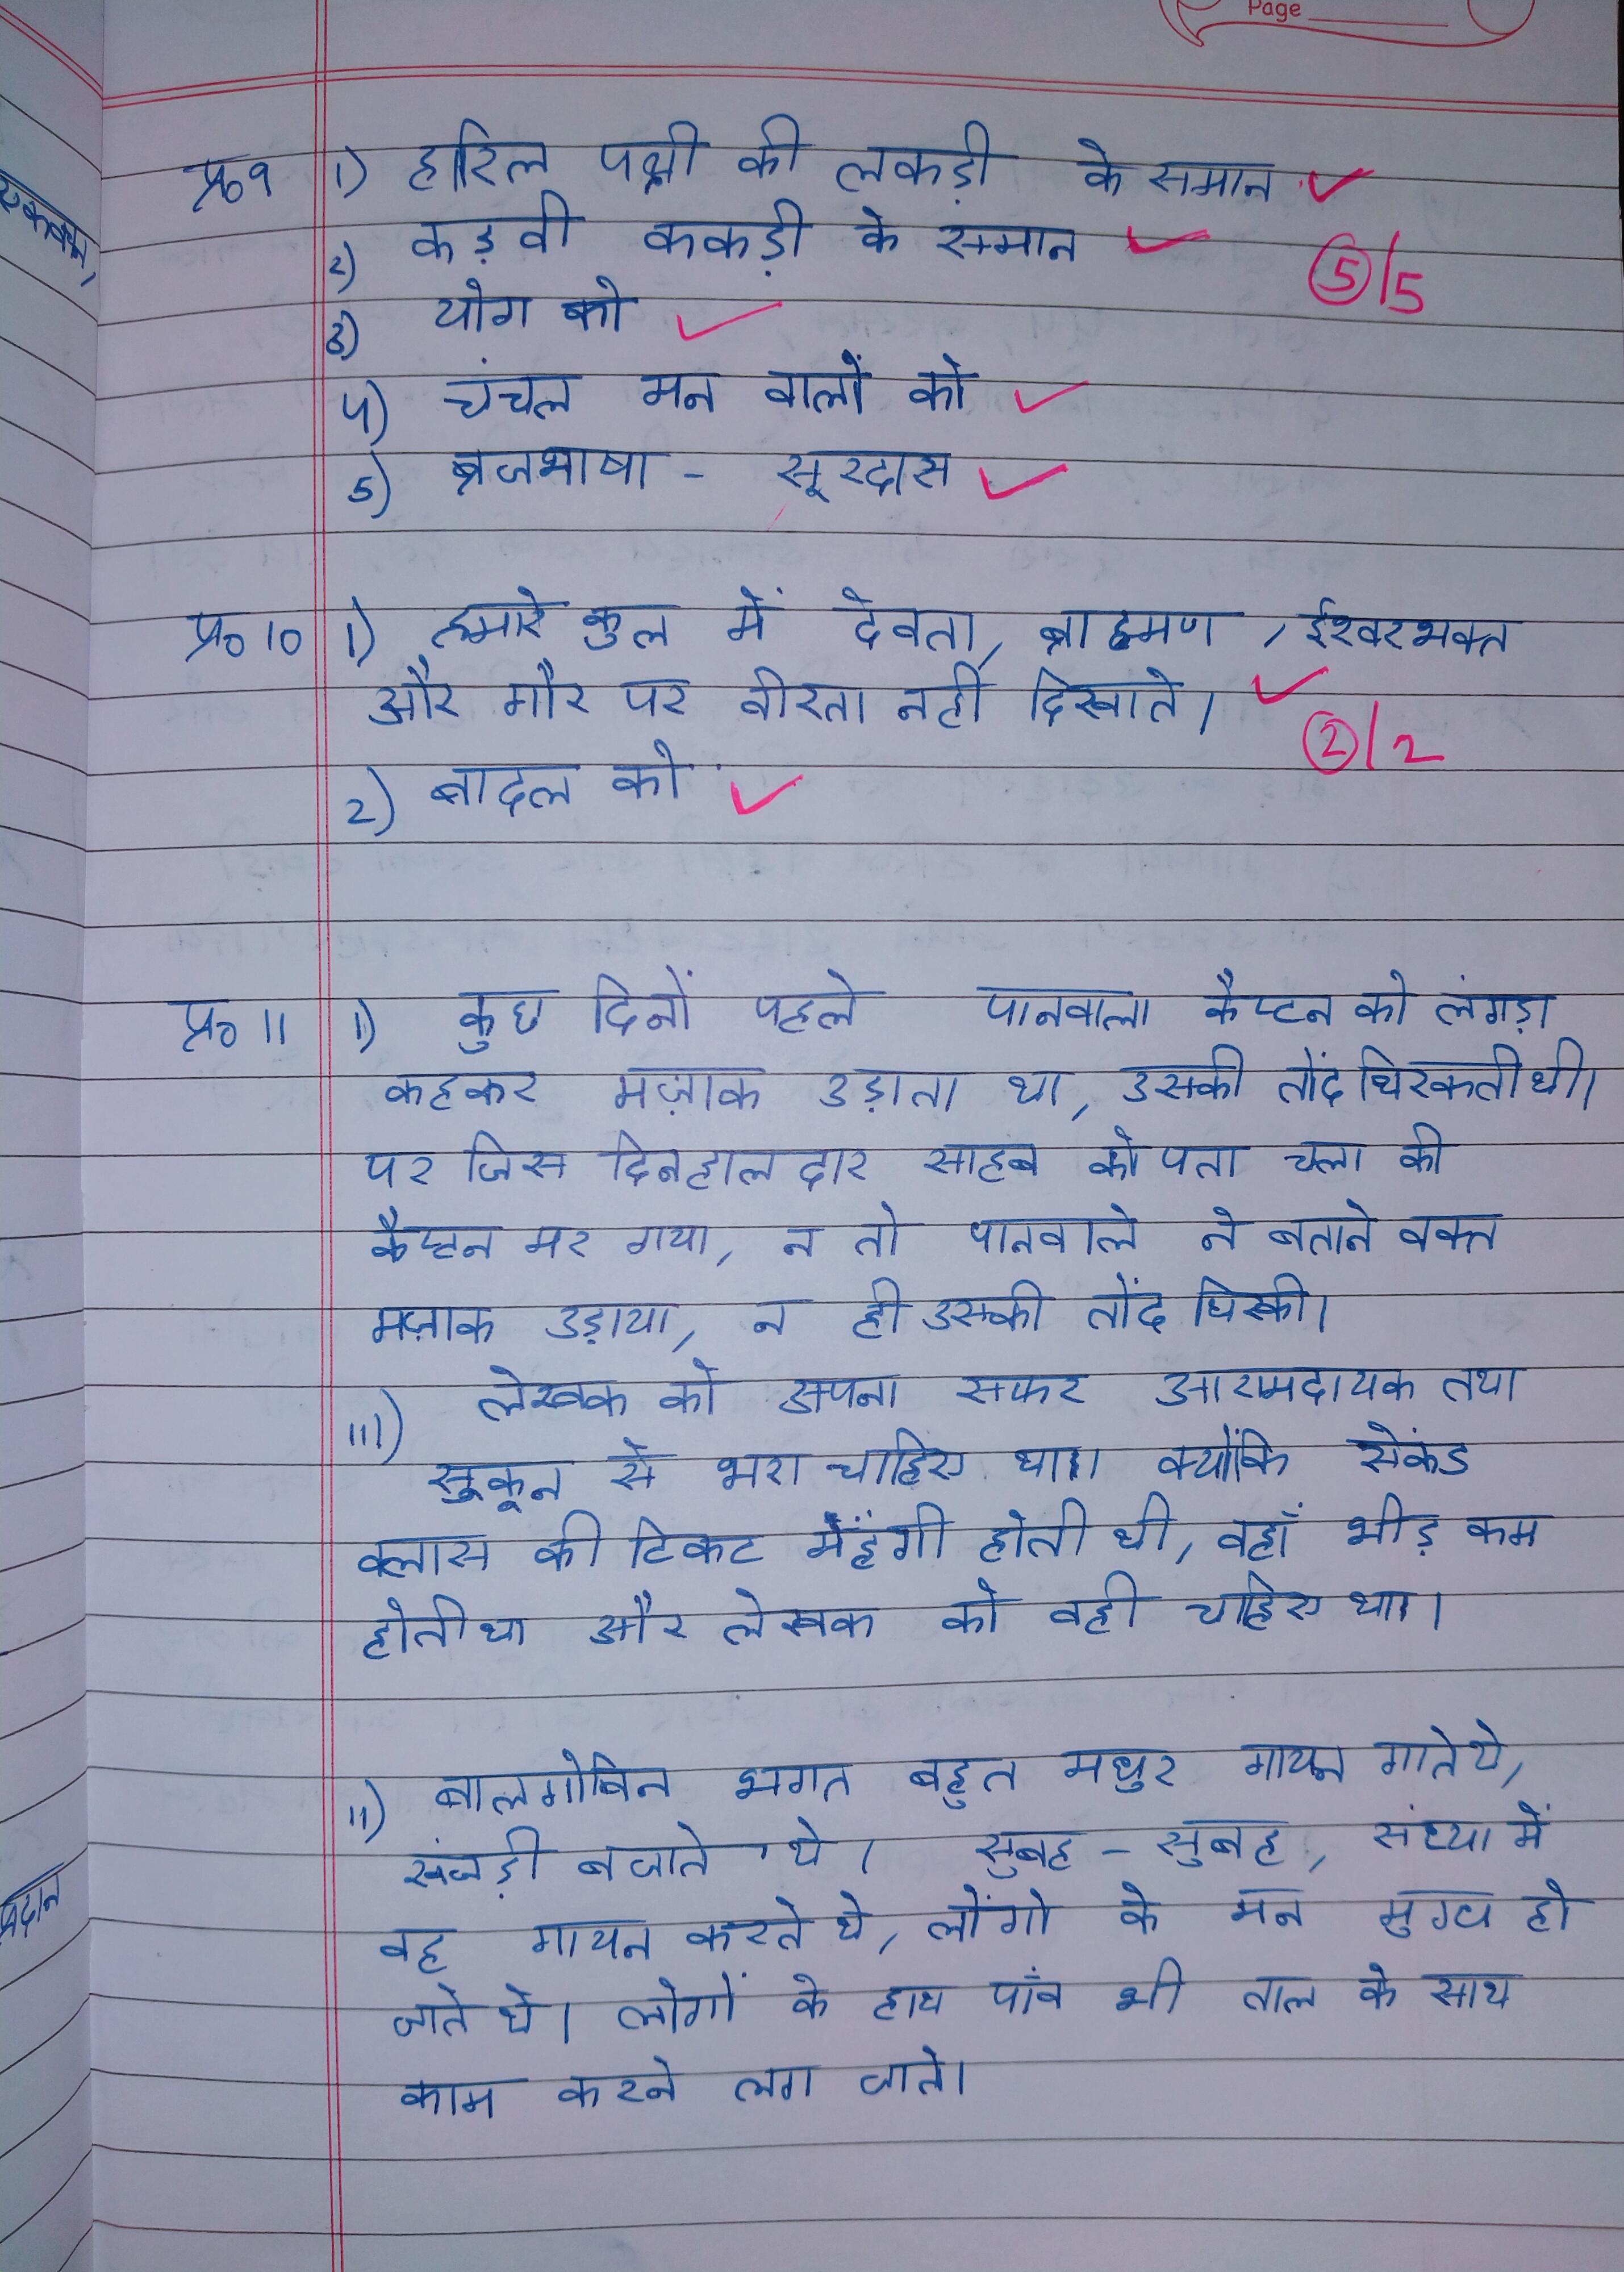 Page
प्र०९ 1) हारिल पक्षी की लकड़ी के समान
2) कड़वी ककड़ी के समान
5/5
3) योग को
4) चंचल मन वालों को
5) ब्रजभाषा - सूरदास
प्र० 10 1) हमारे कुल में देवता, ब्राह्मण, ईश्वरभक्त
और गौर पर वीरता नहीं दिखाते।
2/2
2) बादल को
प्र० 11 1) कुछ दिनों पहले पानवाला कैप्टन को लंगड़ा
कहकर मज़ाक उड़ाता था, उसकी तोंद थिरकती थी।
पर जिस दिन हालदार साहब को पता चला की
कैप्टन मर गया, न तो पानवाले ने बताने वक्त
मज़ाक उड़ाया, न ही उसकी तोंद घिस्की।
111) लेखक को अपना सफर आरामदायक तथा
सुकून से भरा चाहिए था। क्योंकि सेकंड
क्लास की टिकट मेंहंगी होती थी, वहाँ भीड़ कम
होती था और लेखक को वही चाहिए था।
11) बालगोबिन भगत बहुत मधुर गायन गाते थे,
खंजड़ी बजाते थे। सुबह - सुबह, संध्या में
वह गायन करते थे, लोंगो के मन मुग्ध हो
जाते थे। लोगों के हाथ पांव भी ताल के साथ
काम करने लग जाते।